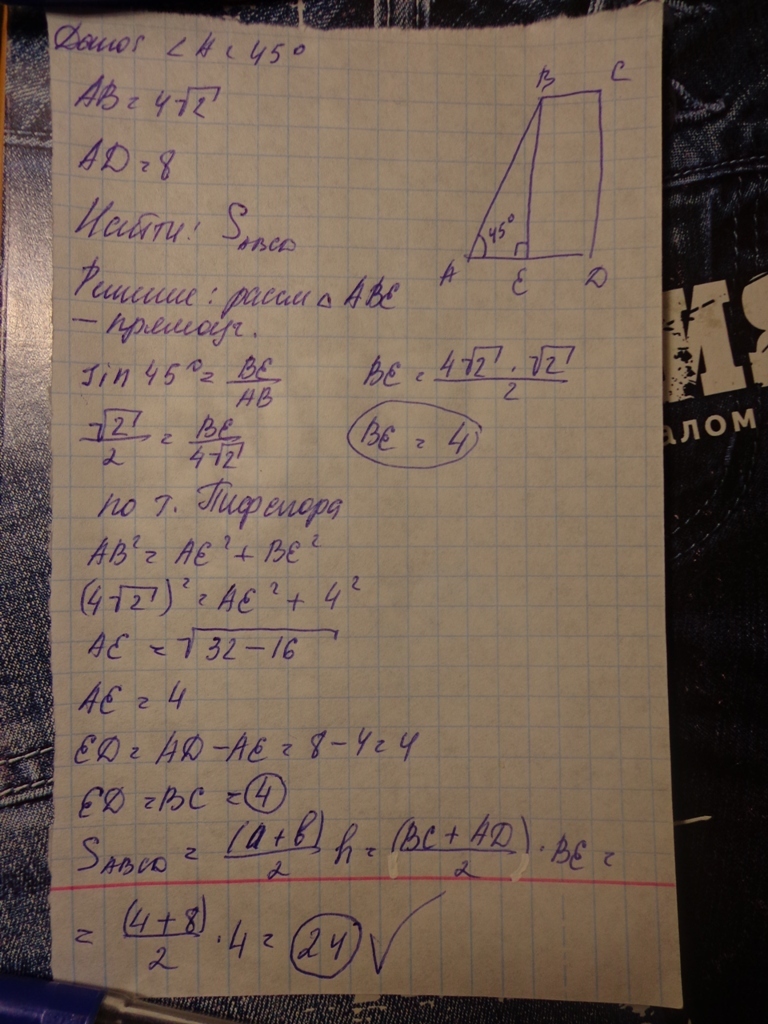 Дано: ∠A = 45°
AB = 4√2
AD = 8
Найти: S ABCD
B C
45°
A E D
Решение: рассм △ ABE
— прямоуг.
Sin 45° = BE/AB
BE = 4√2 · √2 / 2
√2/2 = BE/4√2
BE = 4
по т. Пифагора
AB² = AE² + BE²
(4√2)² = AE² + 4²
AE = √32 − 16
AE = 4
ED = AD − AE = 8 − 4 = 4
ED = BC = 4
S ABCD = (a + b)/2 h = (BC + AD)/2 · BE =
= (4 + 8)/2 · 4 = 24 ✓
АЛОМ